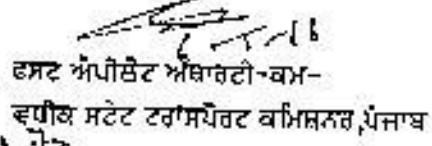 ਫਸਟ ਅੰਪੀਲੇਟ ਅੰਥਾਰਟੀ-ਕਮ-
ਵਧੀਕ ਸਟੇਟ ਟਰਾਂਸਪੋਰਟ ਕਮਿਸ਼ਨਰ,ਪੰਜਾਬ